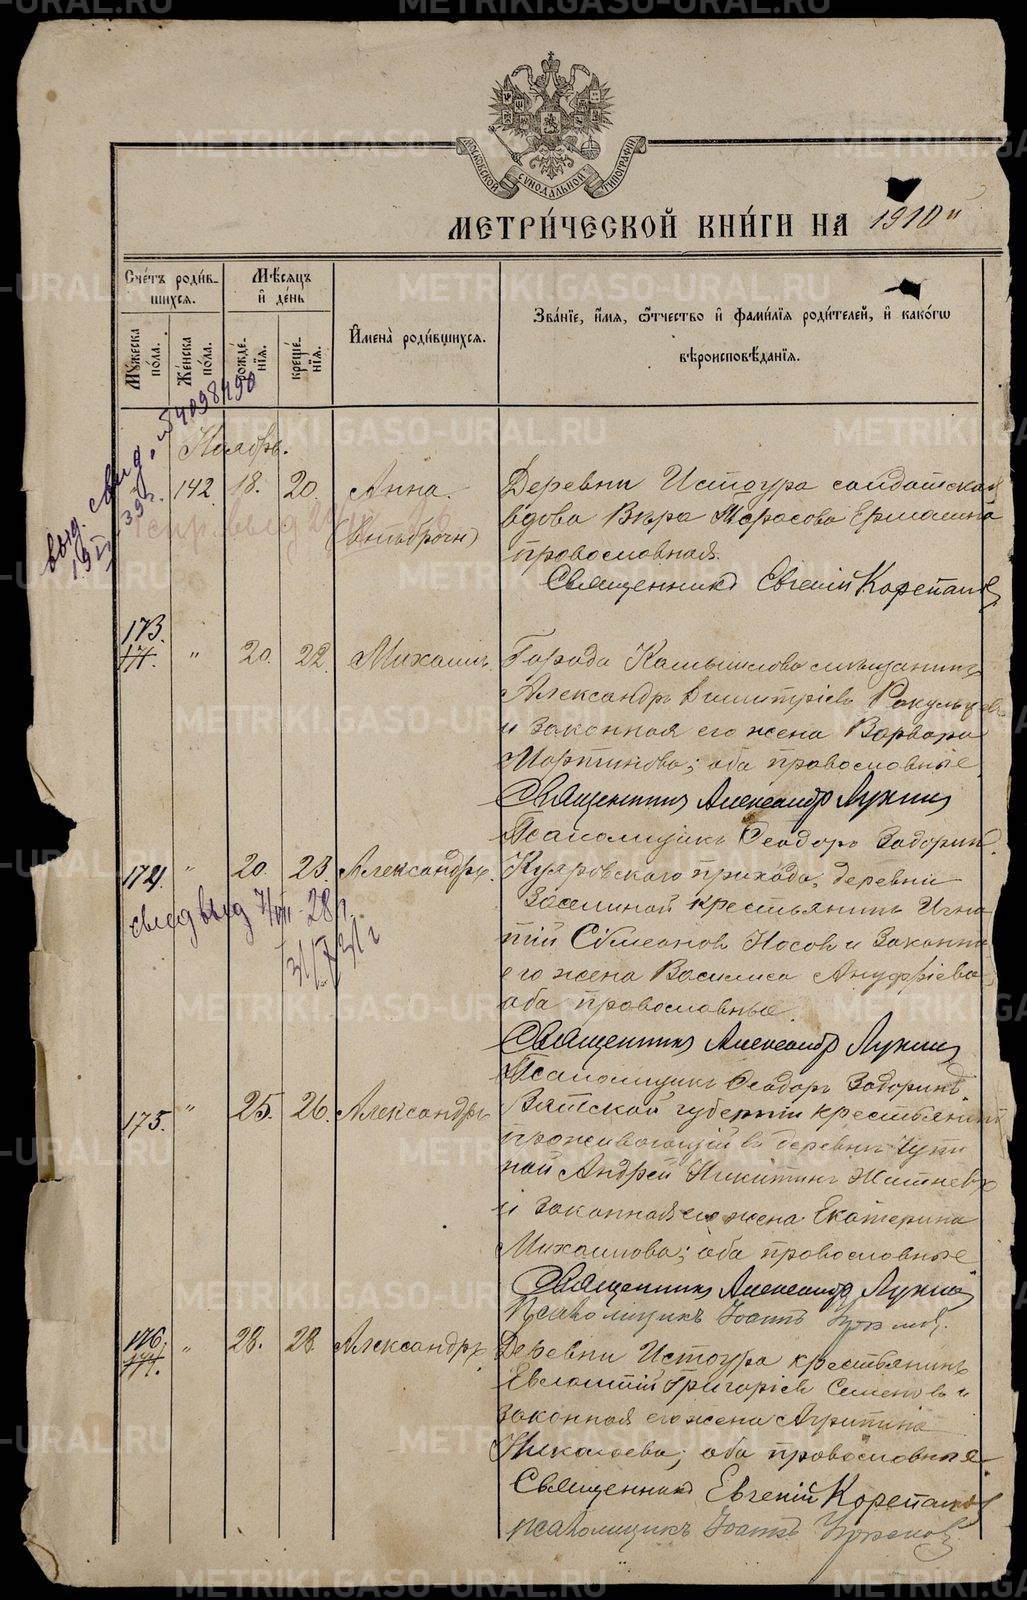 МОСКОВСКОЙ СѴНОДАЛЬНОЙ ТИПОГРАФІИ
МЕТРИ́ЧЕСКОЙ КНИ́ГИ НА 1910 й
Сче́тъ роди́в-
шихся.
Му́жеска по́ла.
Же́нска по́ла.
Мѣ́сяцъ
и҆ де́нь
рожде́-
нія.
креще́-
нія.
И҆мена̀ роди́вшихся.
Зва́ніе, и҆́мя, ѻ҆́тчество и҆ фами́лія роди́телей, и҆ како́гѡ
вѣроисповѣ́данія.
Ноябрь.
142. 18. 20. Анна.
(внѣбрачн)
Деревни Истоура солдатская
вдова Вѣра Тарасова Ермолина
православная.
Священникъ Евгеній Корепановъ
173.
" 20. 22. Михаилъ.
Города Камышлова мѣщанинъ
Александръ Димитріевъ Ракульцев
и законная его жена Варвара
Мартинова; оба православные.
Священникъ Александръ Лукинъ
Псаломщикъ Ѳеодоръ Задоринъ.
174. " 20. 23. Александръ.
свид выд 7/VIII-28 г.
Куяровскаго прихода, деревни
крестьянинъ Игна-
тій Сѵмеоновъ Носовъ и законная
его жена Василиса Ануфріева;
оба православные.
Священникъ Александръ Лукинъ
Псаломщикъ Ѳеодоръ Задоринъ.
175. " 25. 26. Александръ.
Вятской губерніи крестьянинъ
проживающій въ деревнѣ
Андрей Никитинъ
и законная его жена Екатерина
Михаилова; оба православные
Священникъ Александръ Лукинъ
Псаломщикъ Іоаннъ
176.
" 28. 28. Александръ.
Деревни Истоура крестьянинъ
Евлампій Григоріевъ Семеновъ и
законная его жена Агрипина
Николаева; оба православные.
Священникъ Евгеній Корепановъ
псаломщикъ Іоаннъ
METRIKI.GASO-URAL.RU